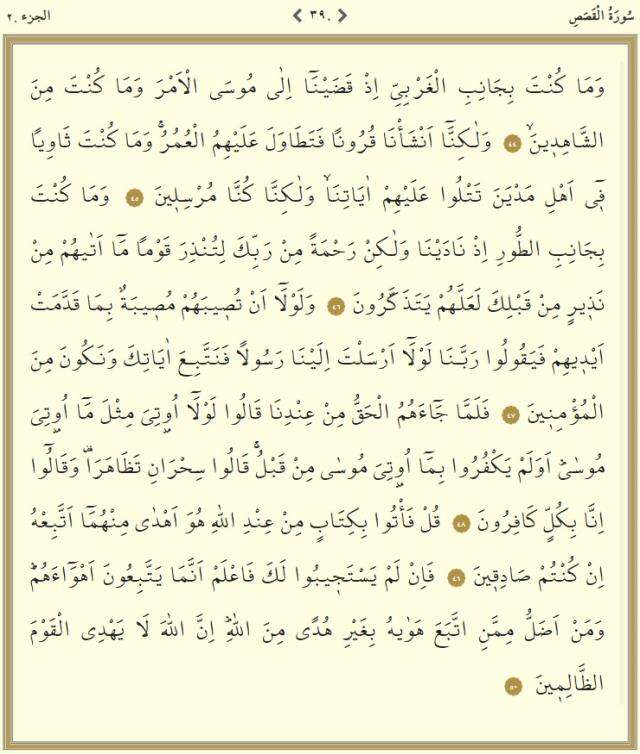 سُورَةُ الْقَصَصِ ٣٩٠ الجزء ٢٠
وَمَا كُنْتَ بِجَانِبِ الْغَرْبِيِّ اِذْ قَضَيْنَٓا اِلٰى مُوسَى الْاَمْرَ وَمَا كُنْتَ مِنَ
الشَّاهِد۪ينَۙ ٤٤ وَلٰكِنَّٓا اَنْشَأْنَا قُرُونًا فَتَطَاوَلَ عَلَيْهِمُ الْعُمُرُۚ وَمَا كُنْتَ ثَاوِيًا
ف۪ٓي اَهْلِ مَدْيَنَ تَتْلُوا عَلَيْهِمْ اٰيَاتِنَاۙ وَلٰكِنَّا كُنَّا مُرْسِل۪ينَ ٤٥ وَمَا كُنْتَ
بِجَانِبِ الطُّورِ اِذْ نَادَيْنَا وَلٰكِنْ رَحْمَةً مِنْ رَبِّكَ لِتُنْذِرَ قَوْمًا مَٓا اَتٰيهُمْ مِنْ
نَذ۪يرٍ مِنْ قَبْلِكَ لَعَلَّهُمْ يَتَذَكَّرُونَ ٤٦ وَلَوْلَٓا اَنْ تُص۪يبَهُمْ مُص۪يبَةٌ بِمَا قَدَّمَتْ
اَيْد۪يهِمْ فَيَقُولُوا رَبَّنَا لَوْلَٓا اَرْسَلْتَ اِلَيْنَا رَسُولًا فَنَتَّبِعَ اٰيَاتِكَ وَنَكُونَ مِنَ
الْمُؤْمِن۪ينَ ٤٧ فَلَمَّا جَٓاءَهُمُ الْحَقُّ مِنْ عِنْدِنَا قَالُوا لَوْلَٓا اُو۫تِيَ مِثْلَ مَٓا اُو۫تِيَ
مُوسٰىۜ اَوَلَمْ يَكْفُرُوا بِمَٓا اُو۫تِيَ مُوسٰى مِنْ قَبْلُۚ قَالُوا سِحْرَانِ تَظَاهَرَا۠ وَقَالُٓوا
اِنَّا بِكُلٍّ كَافِرُونَ ٤٨ قُلْ فَأْتُوا بِكِتَابٍ مِنْ عِنْدِ اللّٰهِ هُوَ اَهْدٰى مِنْهُمَٓا اَتَّبِعْهُ
اِنْ كُنْتُمْ صَادِق۪ينَ ٤٩ فَاِنْ لَمْ يَسْتَج۪يبُوا لَكَ فَاعْلَمْ اَنَّمَا يَتَّبِعُونَ اَهْوَٓاءَهُمْۜ
وَمَنْ اَضَلُّ مِمَّنِ اتَّبَعَ هَوٰيهُ بِغَيْرِ هُدًى مِنَ اللّٰهِۜ اِنَّ اللّٰهَ لَا يَهْدِى الْقَوْمَ
الظَّالِم۪ينَ ٥٠